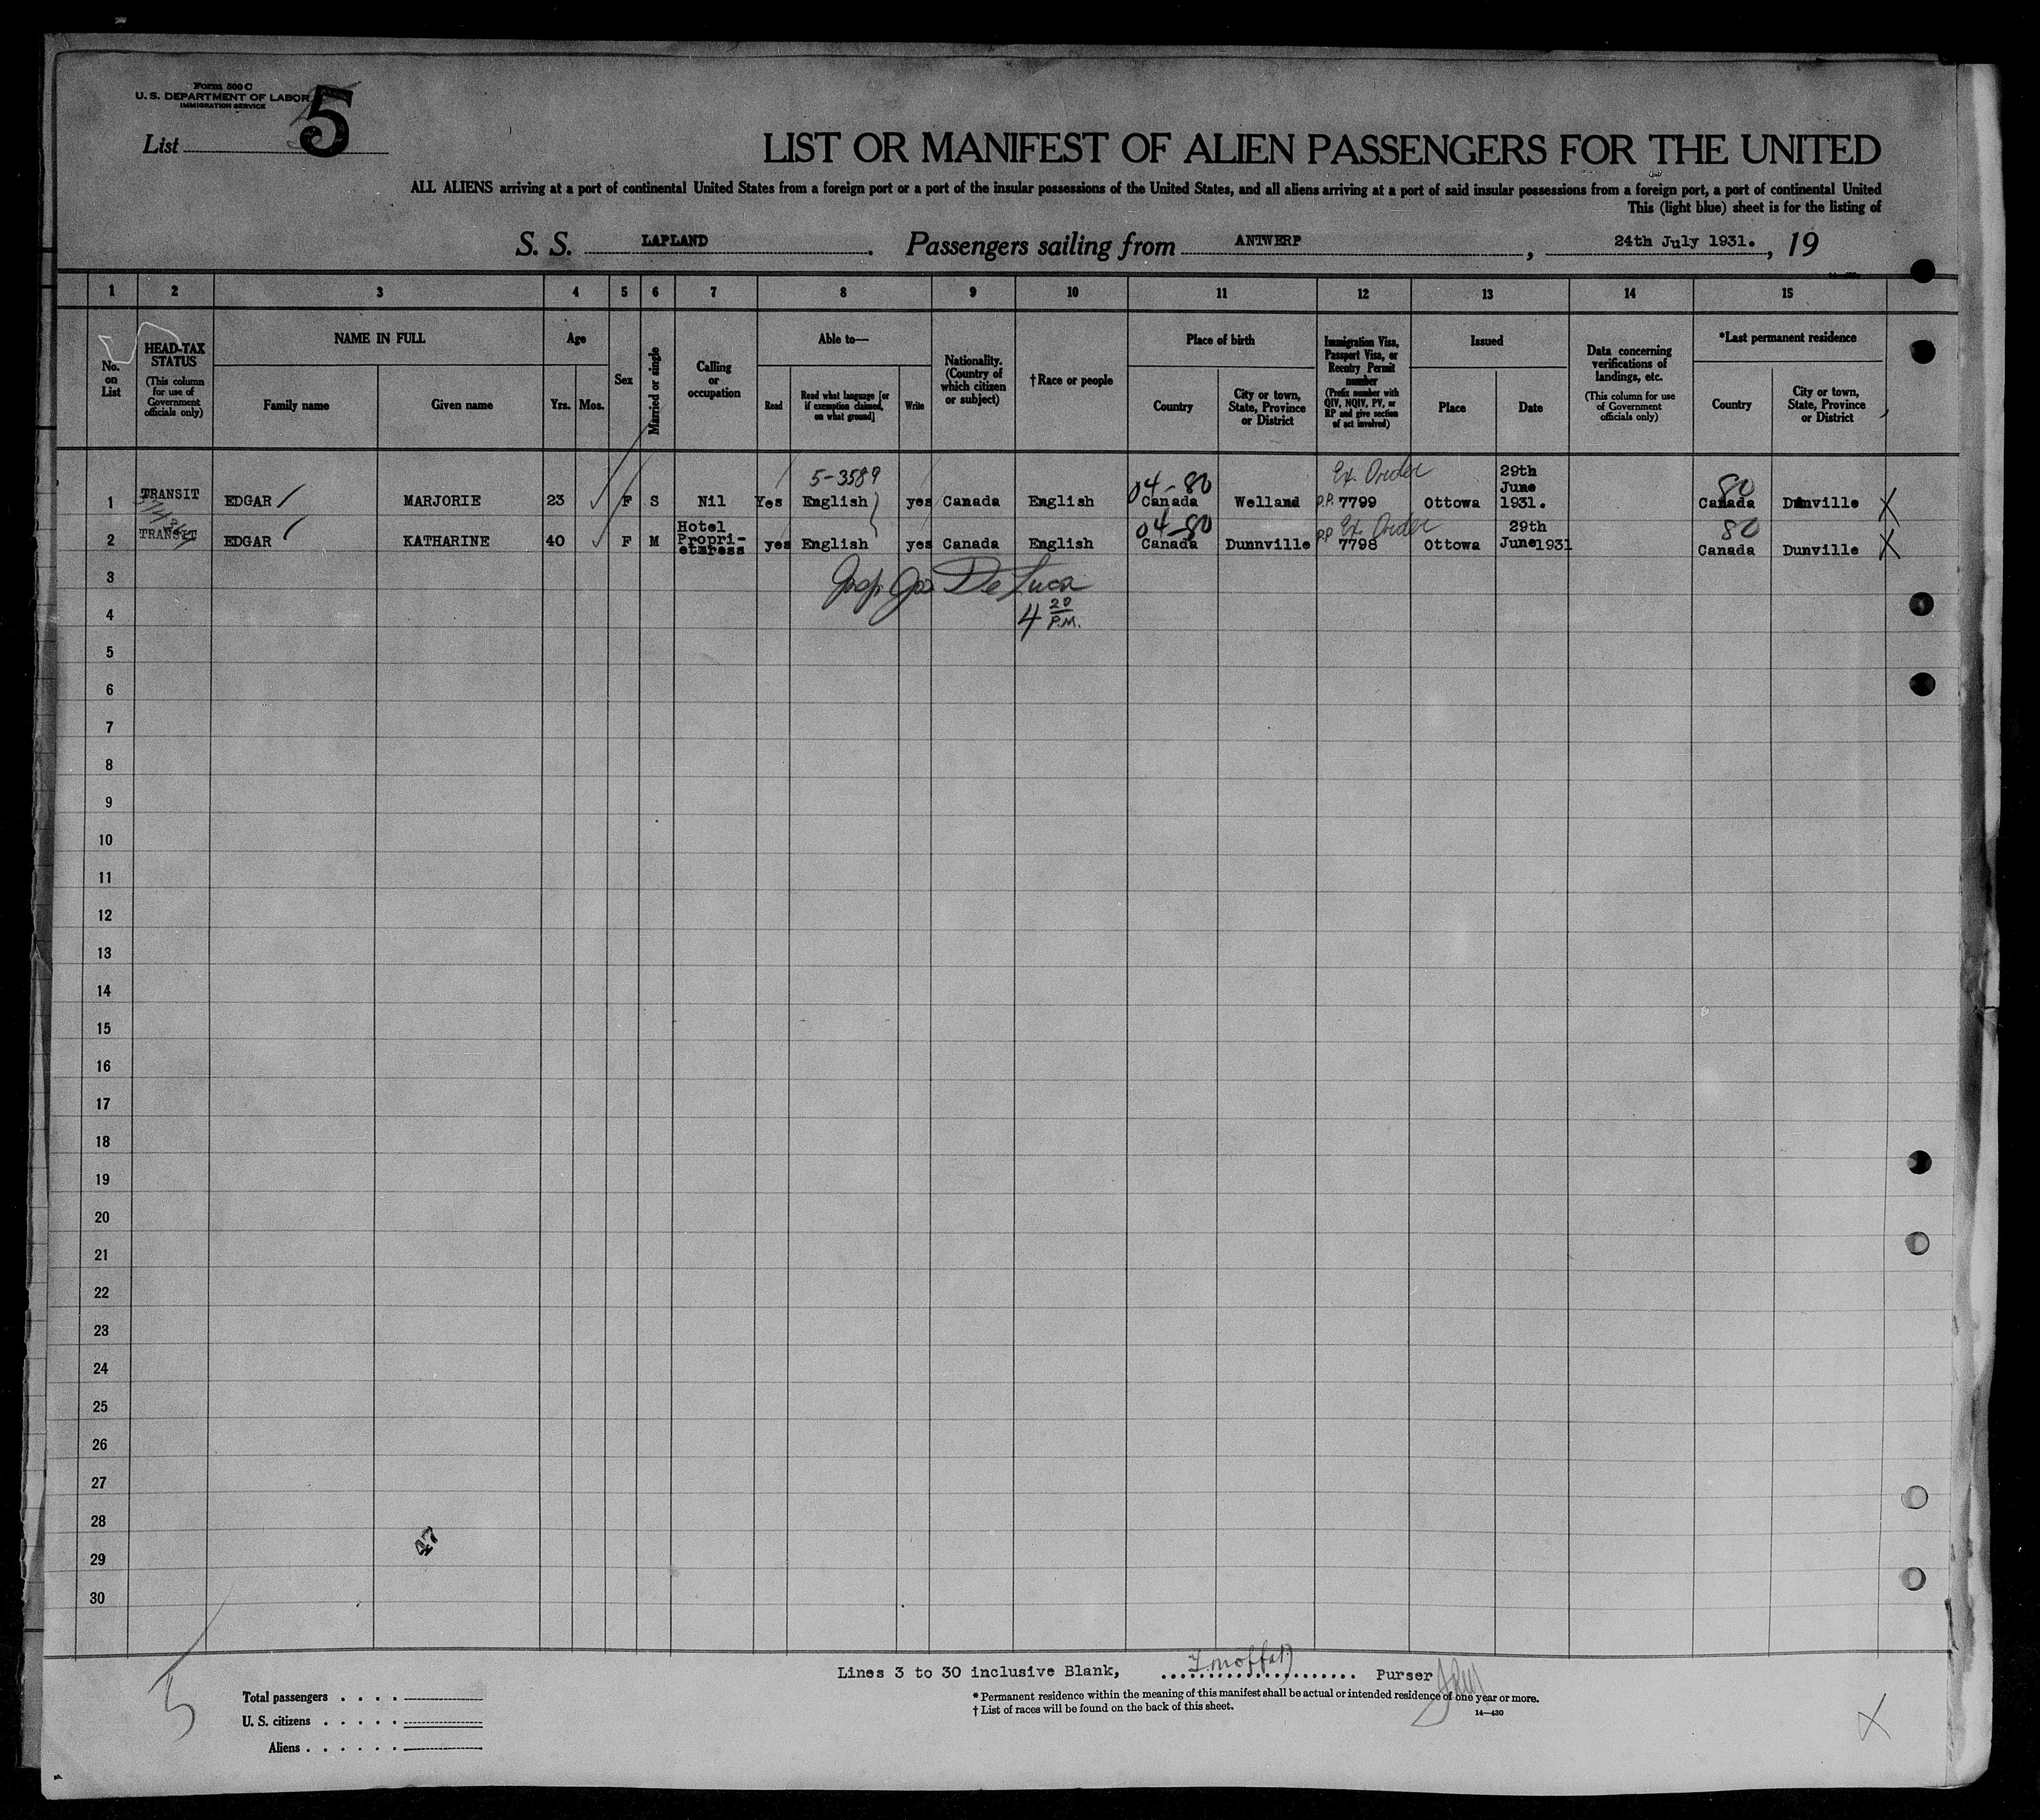 Form 500 C
U. S. DEPARTMENT OF LABOR
IMMIGRATION SERVICE
List 5
LIST OR MANIFEST OF ALIEN PASSENGERS FOR THE UNITED
ALL ALIENS arriving at a port of continental United States from a foreign port or a port of the insular possessions of the United States, and all aliens arriving at a port of said insular possessions from a foreign port, a port of continental United
This (light blue) sheet is for the listing of
S. S. LAPLAND. Passengers sailing from ANTWERP, 24th July 1931., 19
1 2 3 4 5 6 7 8 9 10 11 12 13 14 15
No. on List
HEAD-TAX STATUS
(This column for use of Government officials only)
NAME IN FULL
Family name
Given name
Age
Yrs.
Mos.
Sex
Married or single
Calling or occupation
Able to—
Read
Read what language [or if exemption claimed, on what ground]
Write
Nationality. (Country of which citizen or subject)
†Race or people
Place of birth
Country
City or town, State, Province or District
Immigration Visa, Passport Visa, or Reentry Permit number
(Prefix number with QIV, NQIV, PV, or RP and give section of act involved)
Issued
Place
Date
Data concerning verifications of landings, etc.
(This column for use of Government officials only)
*Last permanent residence
Country
City or town, State, Province or District
5-3589
04-80
Ex. Order
80
1 TRANSIT EDGAR MARJORIE 23 F S Nil Yes English yes Canada English Canada Welland P.P. 7799 Ottowa 29th June 1931. Canada Dunville X
04-80
Ex. Order
80
2 TRANSIT EDGAR KATHARINE 40 F M Hotel Propri-etress yes English yes Canada English Canada Dunnville P.P 7798 Ottowa 29th June1931 Canada Dunville X
3 De Luca
4 4 20 P.M.
5
6
7
8
9
10
11
12
13
14
15
16
17
18
19
20
21
22
23
24
25
26
27
28
29
30
47
5
Lines 3 to 30 inclusive Blank, F. Moffatt Purser
Total passengers . . . .
U. S. citizens . . . . .
Aliens . . . . . .
* Permanent residence within the meaning of this manifest shall be actual or intended residence of one year or more.
† List of races will be found on the back of this sheet.
14—430
X